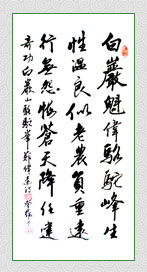 白巖魁偉駱駝峰生
性溫良似老農負重遠
行無怨悔蒼天降任建
奇功白巖山駱駝峯